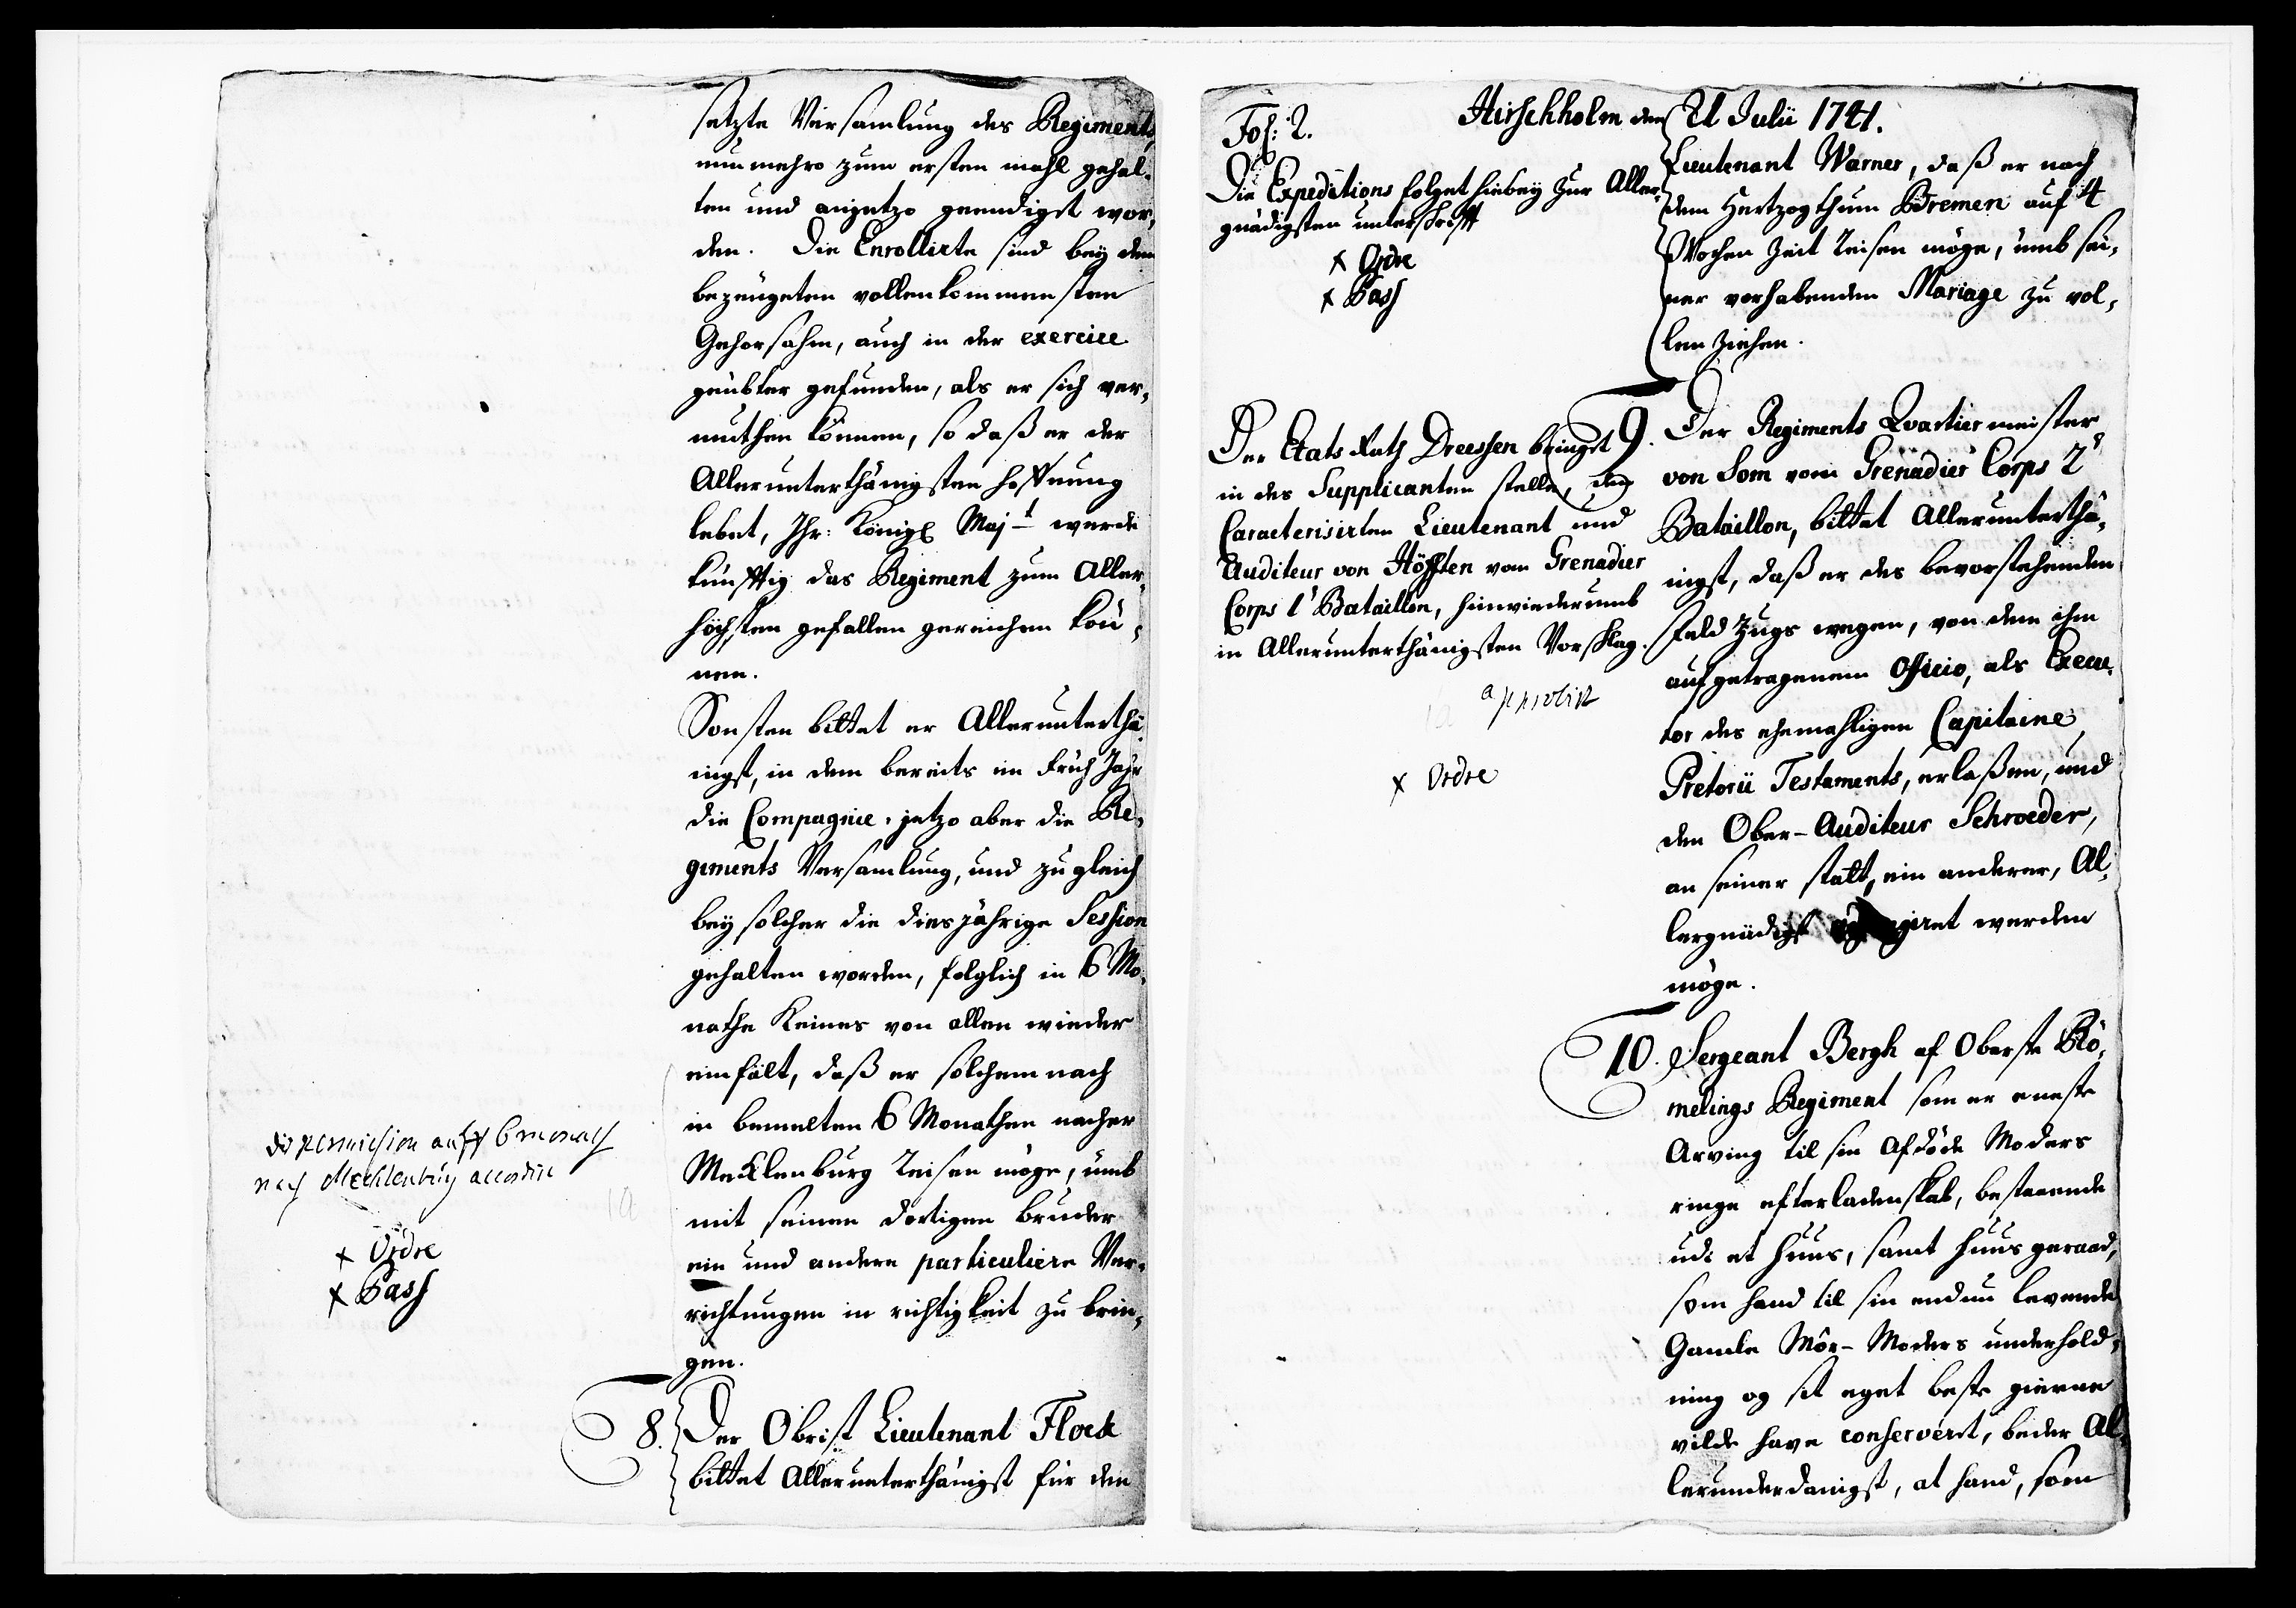 setzte Versamlung des Regiments,
nunmehro zum ersten mahl gehal-
ten und anjetzo geendiget wor,
den. Die Enrollirte sind bey dem
bezeugeten vollenkommensten
Gehorsahm, auch in der exercice
geübter gefunden, als er sich ver,
muthen können, so daß er der
Allerunterthänigsten hoffnung
lebet, Ihr: Königl Maj.t werde
künfftig das Regiment zum Aller,
höchsten gefallen gereichen kön,
nen.
Sonsten bittet er Allerunterthä,
nigst, in dem bereits im Früh Jahr
die Compagnie, jetzo aber die Re,
giments Versamlung, und zugleich
bey solcher die diesjährige Session
gehalten worden, folglich in 6 Mo,
nathe Keines von allen wieder
einfält, daß er solchemnach
in bemelten 6 Monathen nacher
Mecklenburg reisen möge, umb
mit seinen dortigen bruder
ein und andere particuliere Ver,
richtungen in richtigkeit zu brin,
gen.
die permission auff 6 monath
nach Mechlenburg accordirt
x Ordre
x Pass
8. Der Obrist Lieutenant Flock
bittet Allerunterthänigst für den
Fol: 2.
Hirschholm den 21 Julii 1741.
Die Expeditions folget hiebey zur Aller,
gnädigsten unterschrifft
x Ordre
x Pass
Lieutenant Warner, daß er nach
dem Hertzogthum Bremen auf 4
Wochen Zeit reisen möge, umb sei,
ner vorhabenden Mariage zu vol,
len ziehen.
Der Etats Rath Dreessen bringet
in des Supplicanten stelle, den
Caracterisirten Lieutenant und
Auditeur von Höfften vom Grenadier
Corps 1' Bataillon, hinwiederumb
in Allerunterthänigsten Vorschlag.
approbirt
x Ordre
9. Der Regiments Qvartiermeister
von Som vom Grenadier Corps 2'
Bataillon, bittet Allerunterthä,
nigst, daß er des bevorstehenden
Feld Zugs wegen, von dem ihm
aufgetragenem Officio, als Execu,
tor des ehemahligen Capitaine
Pretorii Testaments, erlaßen, und
den Ober-Auditeur Schroeder,
an seiner statt, ein anderer, Al,
lergnädigst werden
möge.
10. Sergeant Bergh af Oberste Rö,
melings Regiment som er eneste
Arving til sin Afdöde Moders
ringe efterladenskab, bestaaende
udi et huus, samt huusgeraad,
som hand til sin endnu levende
Gamle Mör-Moders underhold,
ning og sit eget beste gierne
vilde have conserveret, beder Al,
lerunderdanigst, at hand, som